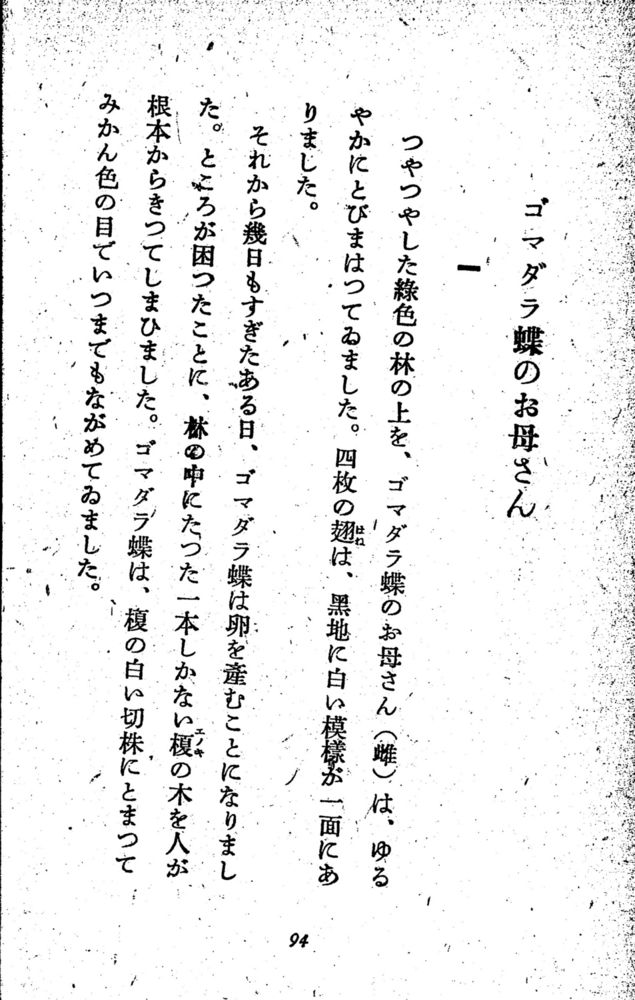 ゴマダラ蝶のお母さん
一
つやつやした綠色の林の上を、ゴマダラ蝶のお母さん（雌）は、ゆる
やかにとびまはつてゐました。四枚の翅は、黑地に白い模樣が一面にあ
はね
りました。
それから幾日もすぎたある日、ゴマダラ蝶は卵を產むことになりまし
た。ところが困つたことに、林の中にたつた一本しかない榎の木を人が
エノキ
根本からきつてしまひました。ゴマダラ蝶は、榎の白い切株にとまつて
みかん色の目でいつまでもながめてゐました。
94